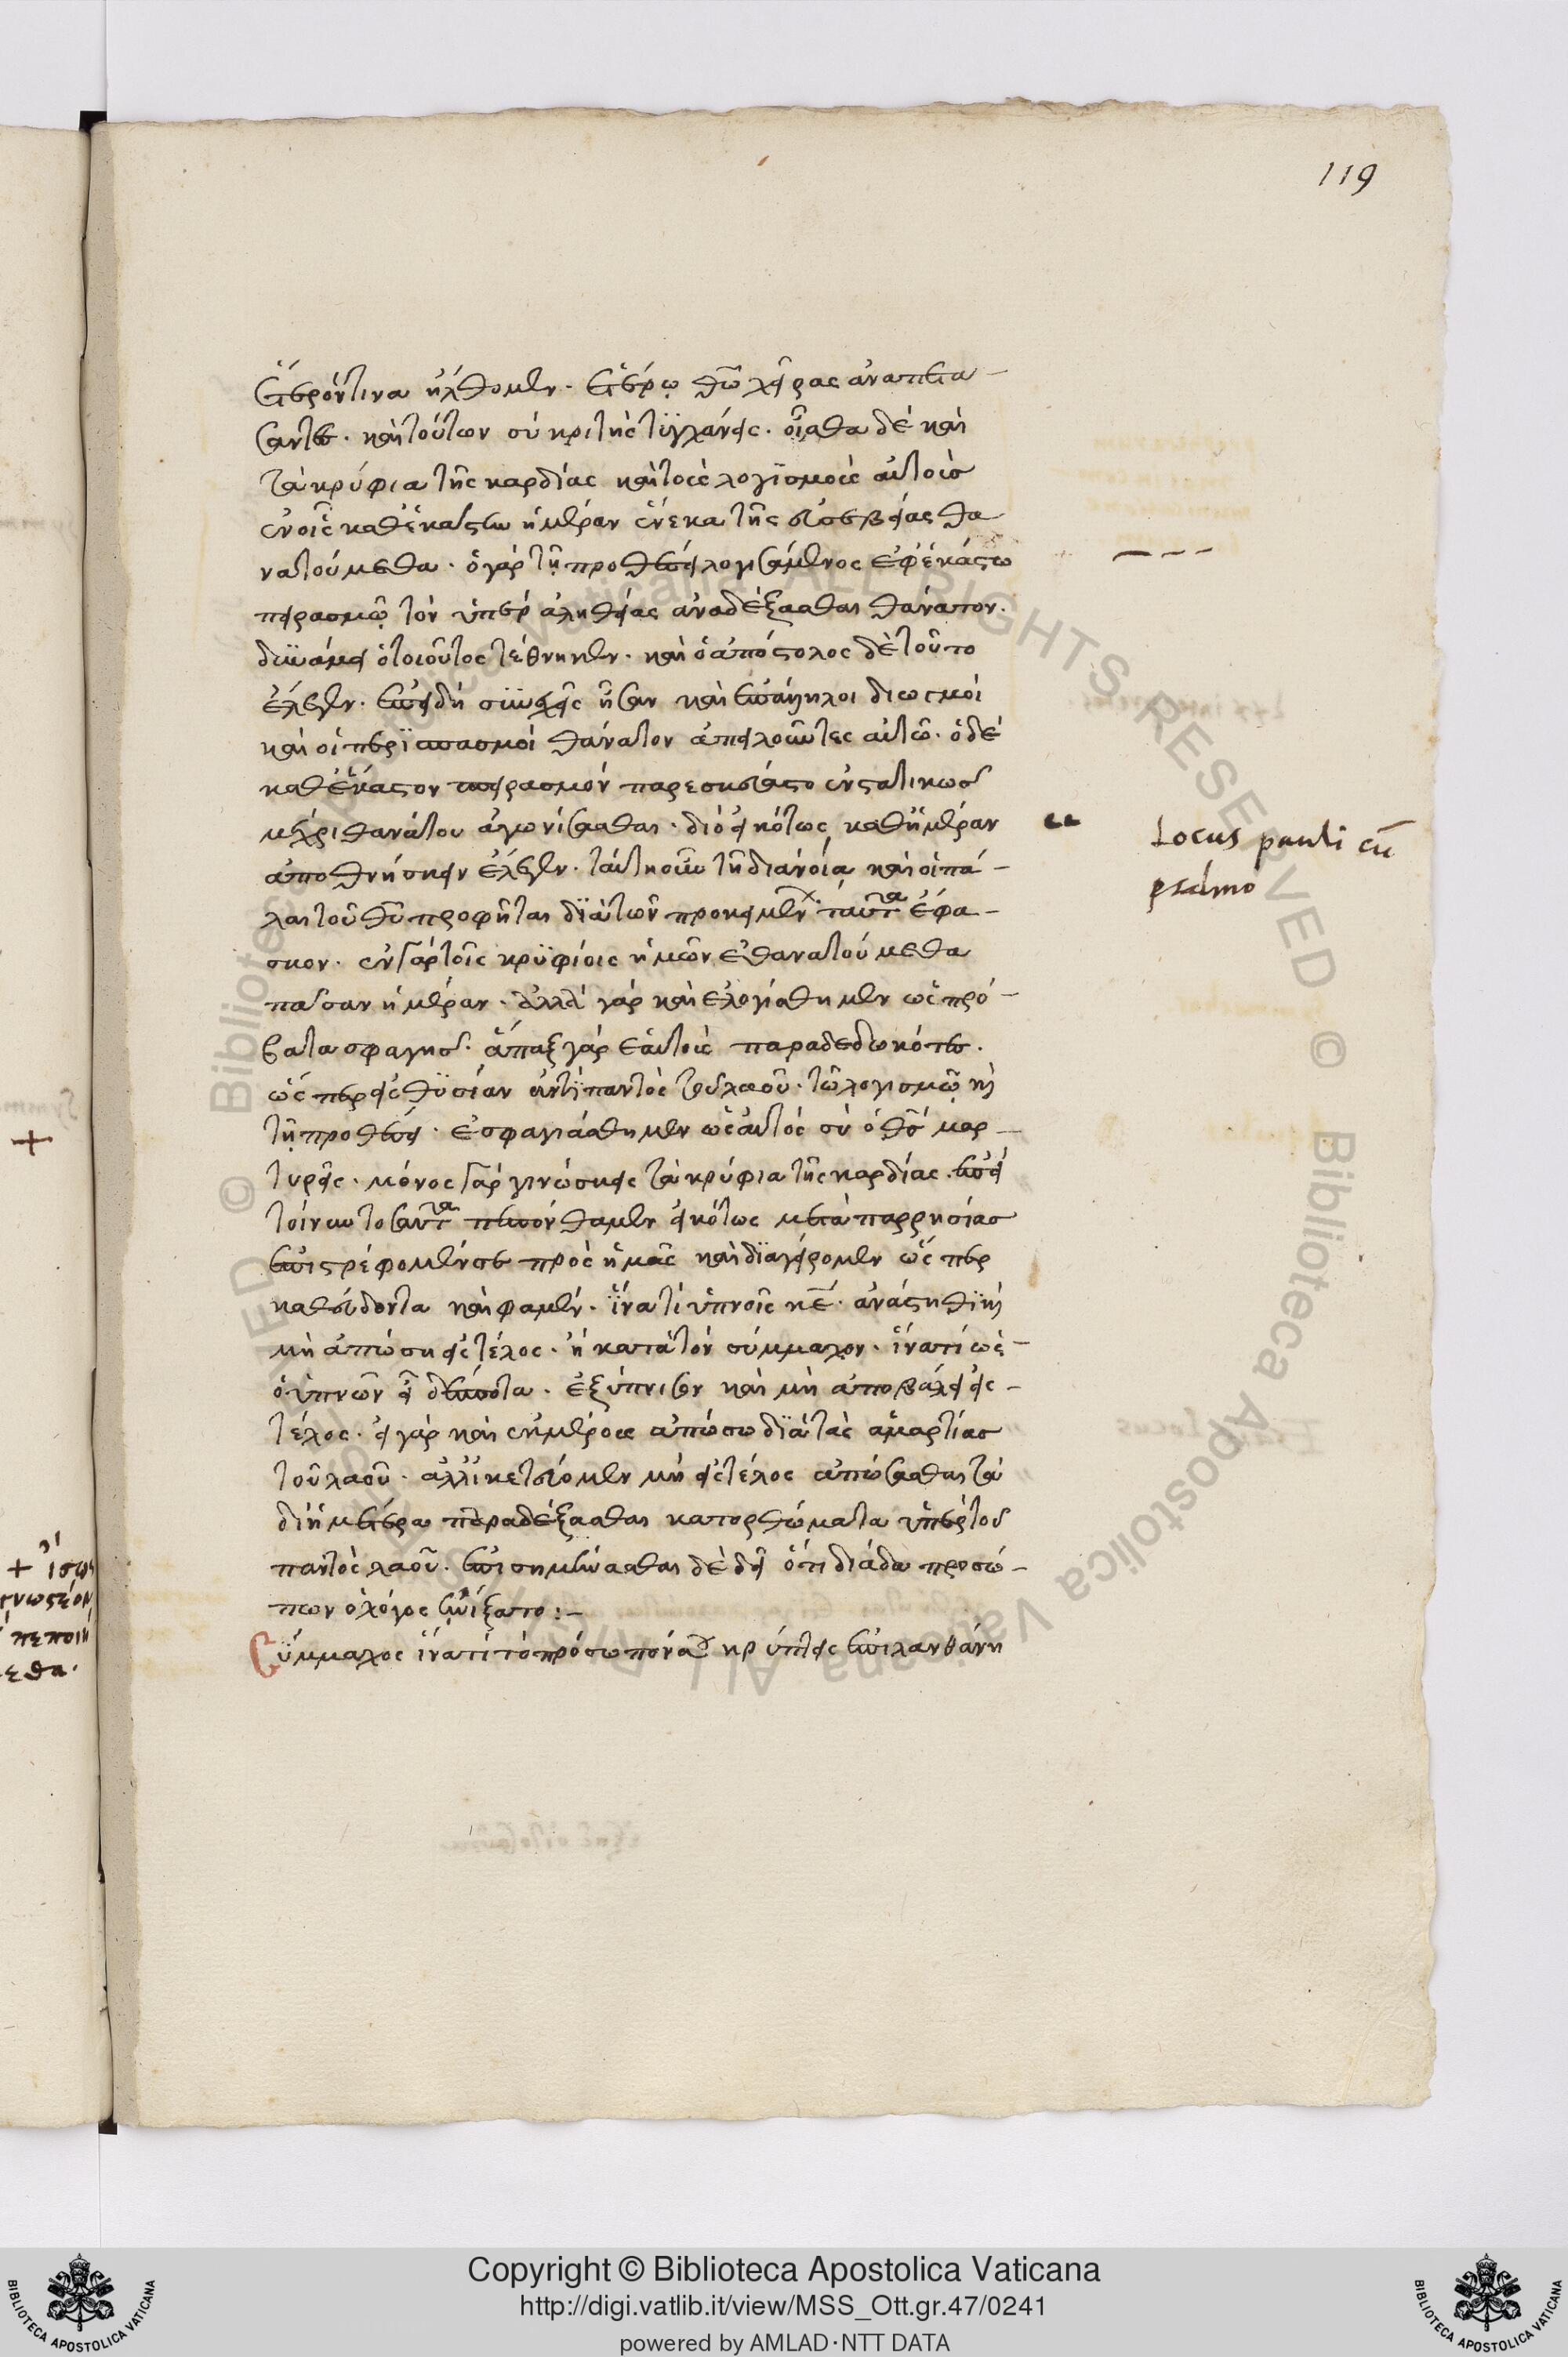 119
ἕτερόν τινα ἤλθομεν. ἑτέρῳ θεῷ χεῖρας ἀναπετά-
σαντες. καὶ τούτων σὺ κριτὴς τυγχάνεις. οἶσθα δὲ καὶ
τὰ κρύφια τῆς καρδίας καὶ τοὺς λογισμοὺς αὐτοὺς
ἐν οἷς καθ' ἑκάστην ἡμέραν ἕνεκα τῆς εὐσεβείας θα
νατούμεθα. ὁ γὰρ τῇ προθέσει λογισάμενος ἐφ' ἑκάστω
πειρασμῷ τὸν ὑπὲρ ἀληθείας ἀναδέξασθαι θάνατον.
δυνάμει ὁ τοιοῦτος τέθνηκεν. καὶ ὁ ἀπόστολος δὲ τοῦτο
ἔλεγεν. ἐπειδὴ συνεχεῖς ἦσαν καὶ ἐπάλληλοι διωγμοί
καὶ οἱ περισπασμοί θάνατον ἀπειλοῦντες αὐτῶ. ὁ δὲ
καθ' ἕκαστον πειρασμόν παρεσκευάστο ἐνστατικῶς
μέχρι θανάτου ἀγωνίσασθαι. διὸ εἰκότως καθ' ἡμέραν
ἀποθνήσκειν ἔλεγεν. ταύτη οὖν τῇ διανοία καὶ οἱ πά-
λαι τοῦ θυ προφῆται διὰ τῶν προκειμένων ταῦτα ἔφα-
σκον. ἐν γὰρ τοῖς κρυφίοις ἡμῶν ἐθανατούμεθα
πᾶσαν ἡμέραν. ἀλλὰ γὰρ καὶ ἐλογίσθημεν ὡς πρό-
βατα σφαγῆς. ἅπαξ γὰρ ἑαυτοὺς παραδεδωκότες.
ὥσπερ εἰς θυσίαν ἀντὶ παντὸς τοῦ λαοῦ. τῶ λογισμῷ καὶ
τῇ προθέσει. ἐσφαγιάσθημεν ὡς αὐτός σὺ ὁ θς μαρ-
τυρεῖς. μόνος γὰρ γινώσκεις τὰ κρύφια τῆς καρδίας. ἐπεὶ
τοίνυν τοσαῦτα πεπόνθαμεν εἰκότως μετὰ παρρησίας
ἐπιστρέφομέν σε πρὸς ἡμᾶς καὶ διαγείρομεν ὥσπερ
καθεύδοντα καὶ φαμέν. ἵνα τί ὑπνοῖς κε. ἀνάστηθι καὶ
μὴ ἀπώση εἰς τέλος. ἢ κατὰ τὸν σύμμαχον. ἵνα τί ὡς-
ὁ ὑπνῶν εἶ δέσποτα. ἐξύπνισον καὶ μὴ ἀποβάλῃ εἰς-
τέλος. εἰ γὰρ καὶ ἐν μέρους ἀπώσω διὰ τὰς ἁμαρτίας
τοῦ λαοῦ. ἀλλ' ἱκετεύομεν μὴ εἰς τέλος ἀπώσασθαι τὰ
δὲ ἡμέτερα παραδέξασθαι κατορθώματα ὑπὲρ τοῦ
παντὸς λαοῦ. ἐπισημήνασθαι δὲ δεῖ ὅτι διὰ δύο προσώ-
πων ὁ λόγος
Σύμμαχος ἵνα τί τὸ πρόσωπόν σου κρύπτεις ἐπιλανθάνη
Locus pauli cū
psalmo
+
+ ἴσως
γνωστέον
πεποιή
εθα.
Copyright © Biblioteca Apostolica Vaticana
http://digi.vatlib.it/view/MSS_Ott.gr.47/0241
powered by AMLAD·NTT DATA
BIBLIOTECA APOSTOLICA VATICANA
BIBLIOTECA APOSTOLICA VATICANA